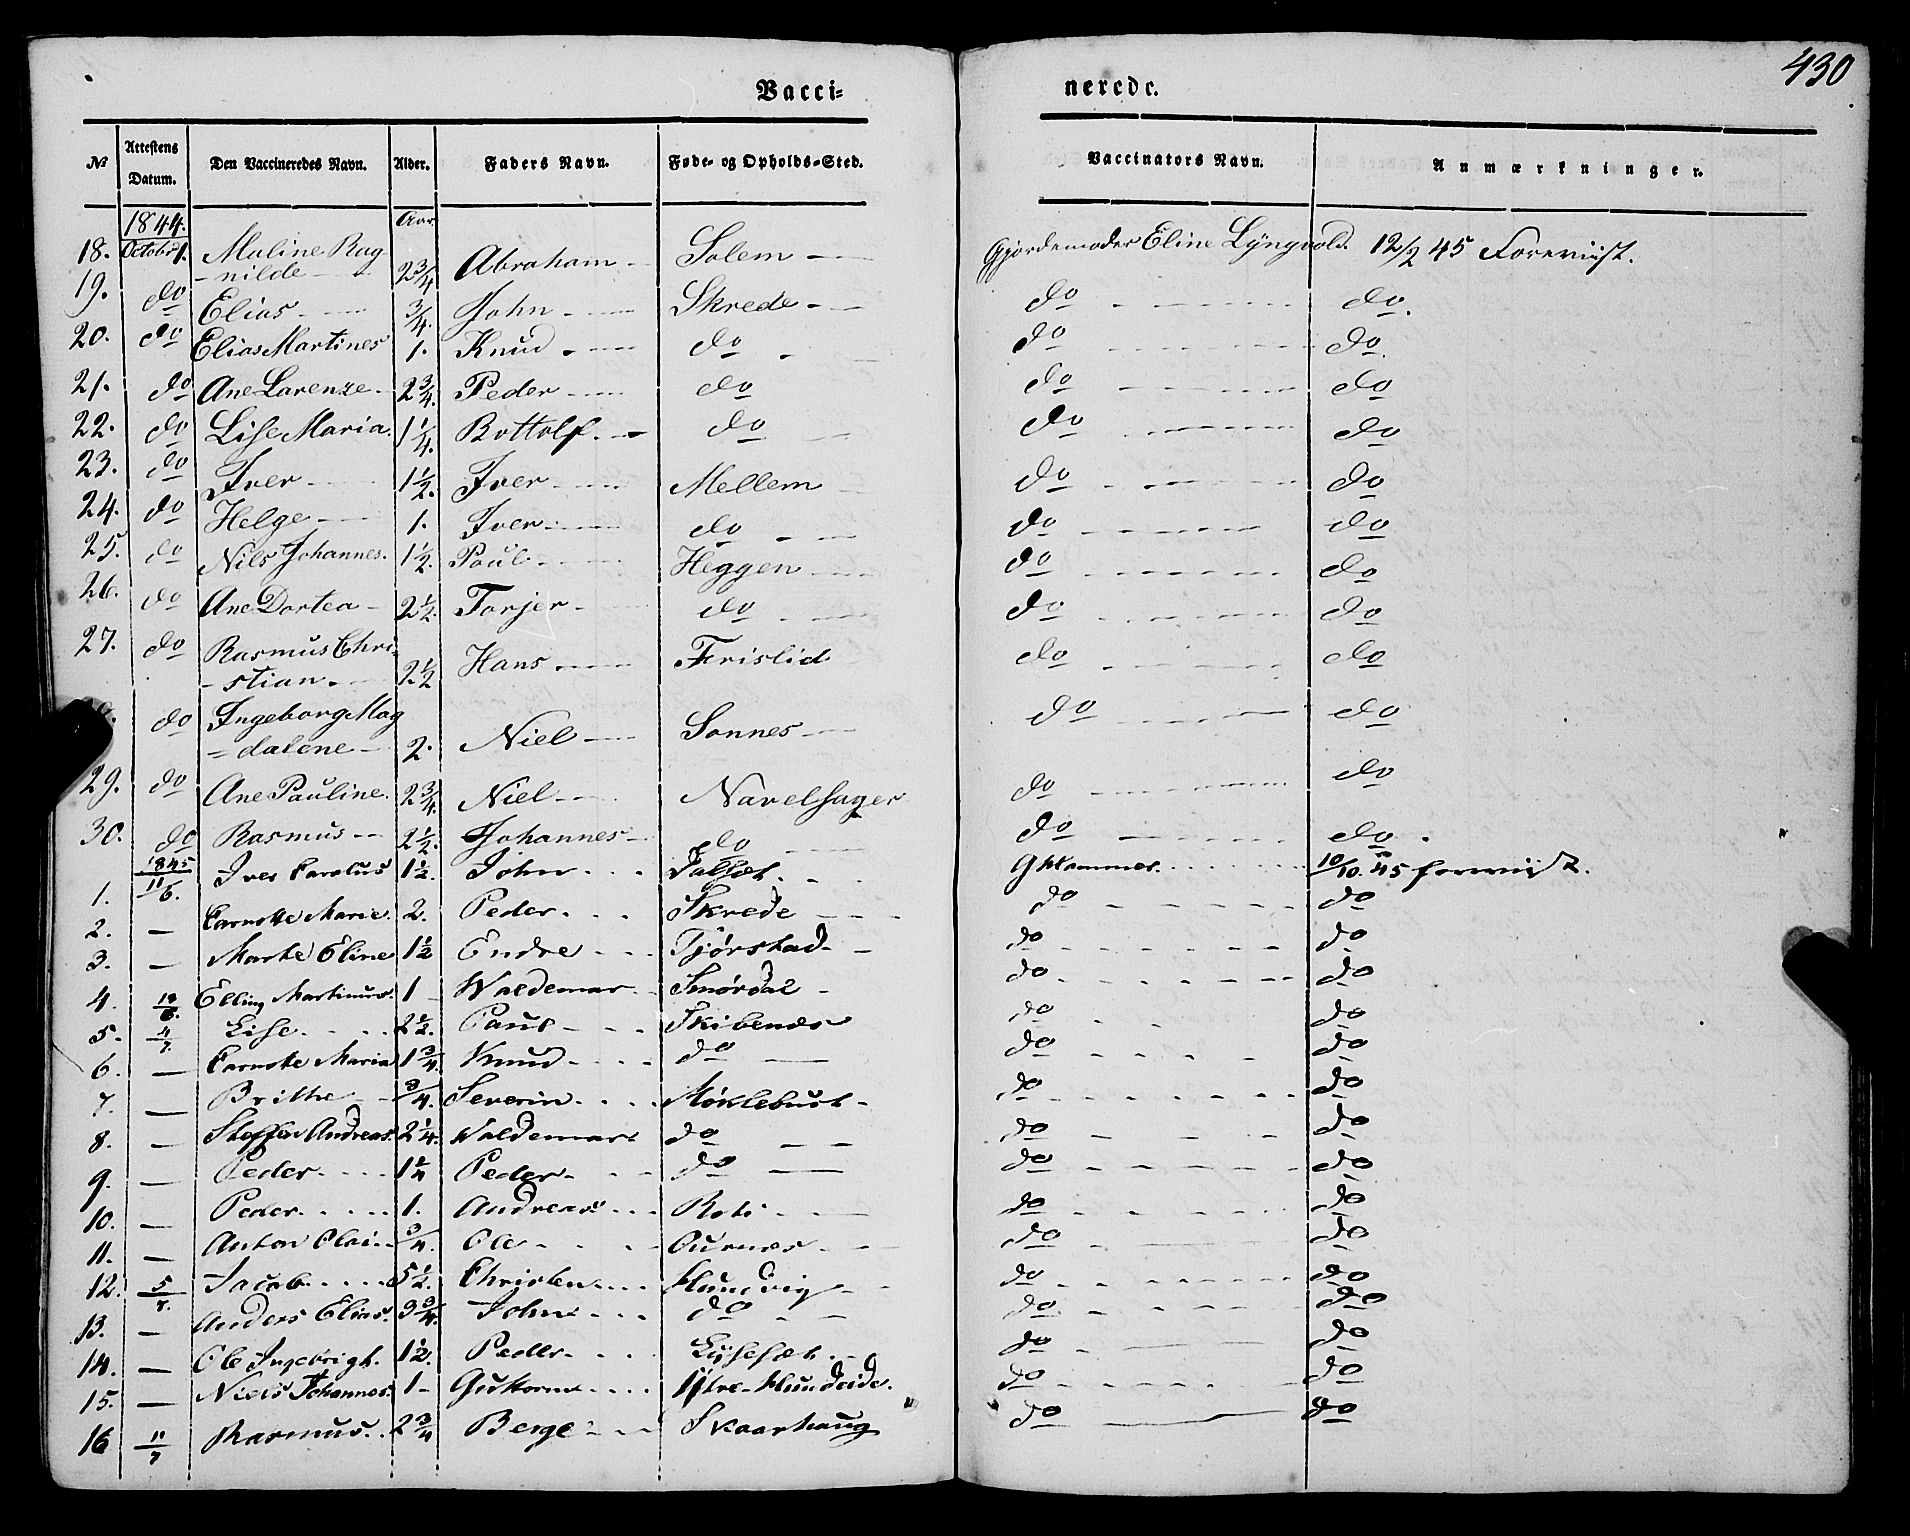 430
Vacci= nerede.
No Attestens Datum. Den Vaccineredes Navn. Alder. Faders Navn. Føde- og Opholds-Sted. Vaccinators Navn. Anmærkninger.
1844. Aar
18. Octobr 1. Maline Rag
-nilde 2 3/4 Abraham Solem Gjordemoder Eline Lyngvold. 12/2 45 Foreviist.
19. do Elias 3/4. John Skrede do do.
20. do Elias Martines 1. Knud do do do.
21. do Ane Lorenze 2 3/4. Peder do do do
22. do Lise Maria. 1 1/4. Bottolf. do do do
23. do Iver 1 1/2. Iver Mellem do do
24. do Helge 1. Iver do do do
25. do Nils Johannes. 1 1/2. Poul Heggen do do
26. do Ane Dortea 2 1/2. Torjer do do do
27. do Rasmus Chri-
-stian 2 1/2 Hans Frislid do do
do Ingeborg Mag
=dalene 2. Niel Sonnes do do
29. do Ane Pauline. 2 3/4. Niel Navelsager do do
30. do Rasmus 2 1/2. Johannes do do do.
1845
1. 11/6. Iver Carolus 1 1/2. John 10/10. 45 foreviist.
2. — Marie. 2. Peder. Skrede do do
3. — Marte Eline 1 1/2 Endre Tjørstad do do
4. Elling Martinus. 1 Waldemar Smørdal do do
5. 4/7. Lise. 2 1/2. Paul Skibenæs do do
6. — Maria 1 3/4. Knud do do do
7. — Brithe 3/4. Severin Møklebust do do
8. — Steffen Andreas. 2 1/4. Waldemar do do do
9. — Peder 1 1/4 Peder do do do
10. — Peder 1. Andreas do do
11. — Anton Olai 3/4. Ole Ournæs do do
12. 5/7. Jacob 5 1/2. Christen Hundvig do do
13. — Anders Elias. 3 3/4. John do do do
14. — Ole Ingebrigt. 1 1/2. Peder do do
15. — Niels Johannes. 1 Guttorm Ytre-Hundeide. do do
16 11/7 Rasmus. 2 3/4 Berge Skaarhaug do do